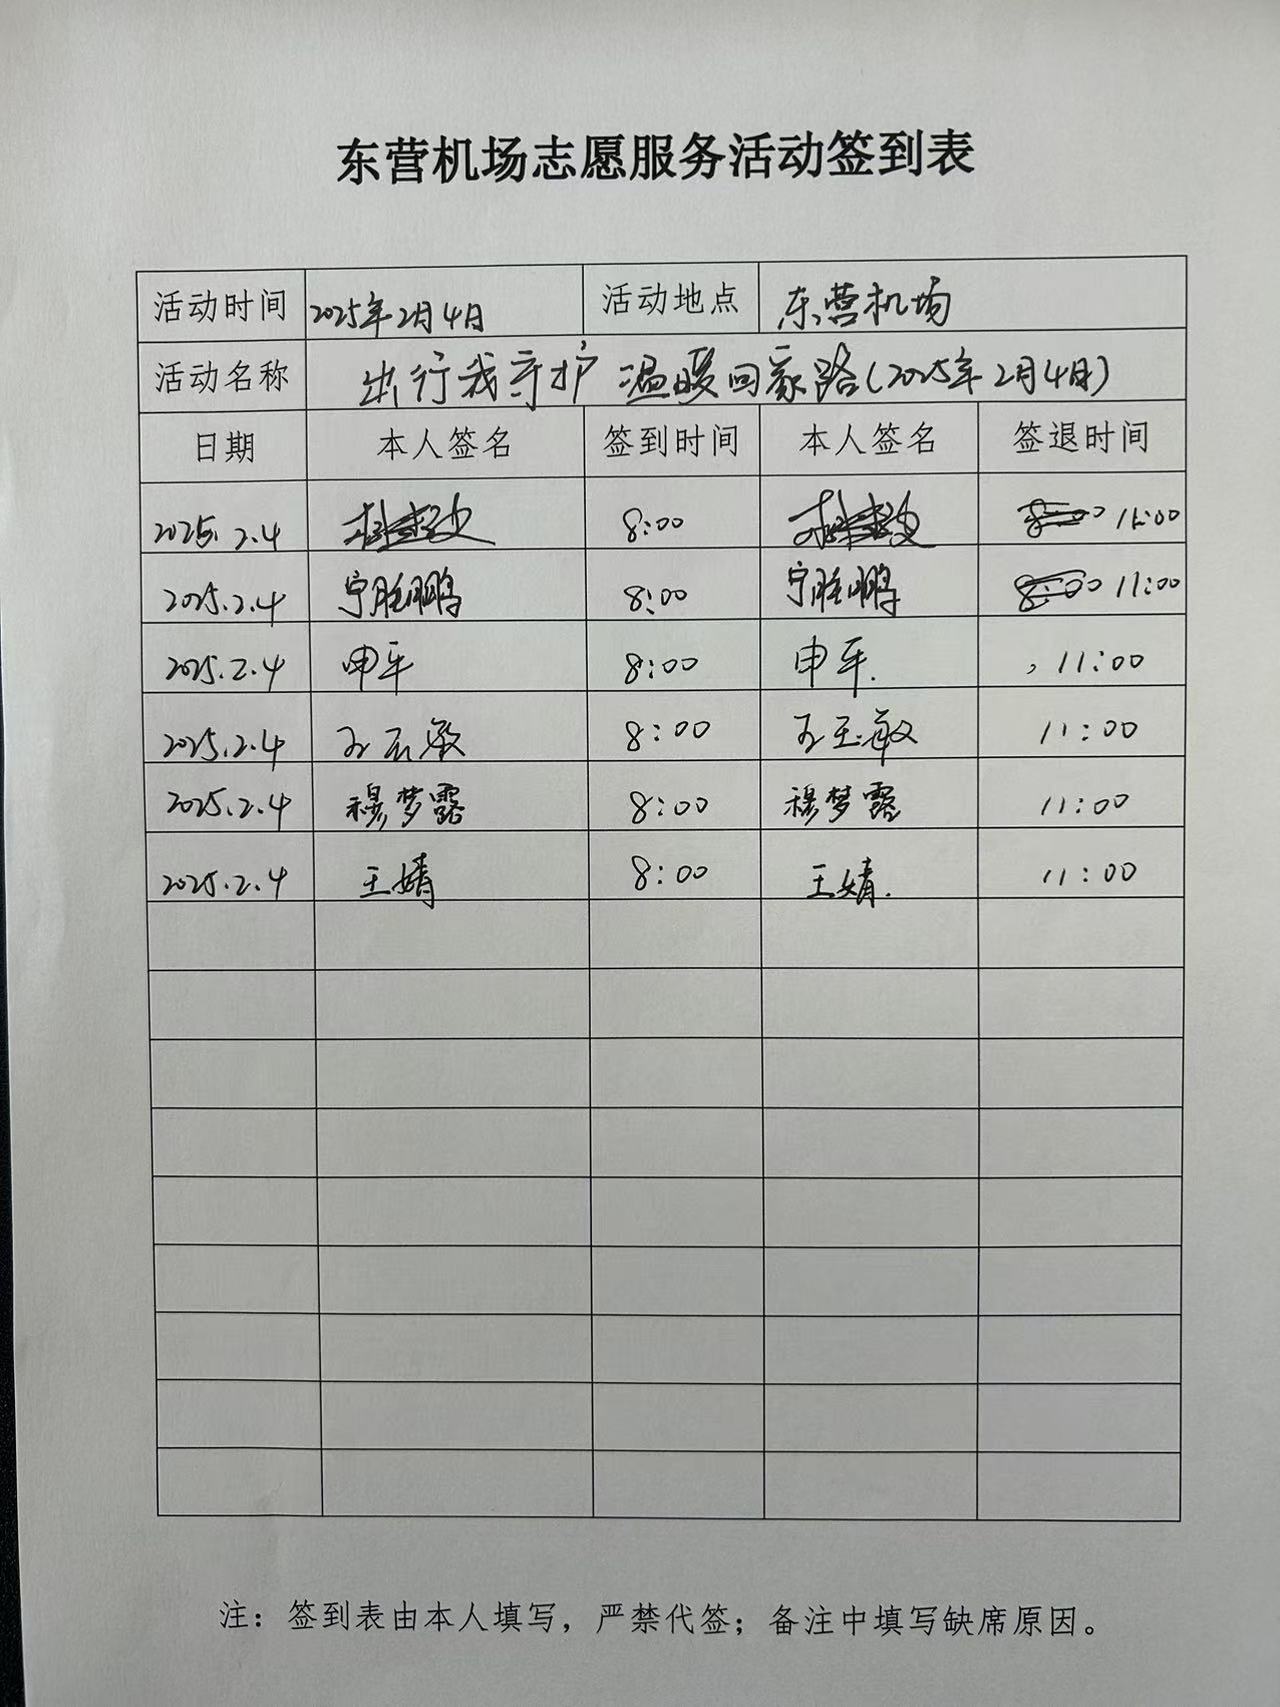 东营机场志愿服务活动签到表
活动时间 2025年2月4日 活动地点 东营机场
活动名称 出行我守护 温暖回家路(2025年2月4日)
日期 本人签名 签到时间 本人签名 签退时间
2025.2.4 8:00 11:00
2025.2.4 宁胜鹏 8:00 宁胜鹏 11:00
2025.2.4 申平 8:00 申平. 11:00
2025.2.4 8:00 11:00
2025.2.4 穆梦露 8:00 穆梦露 11:00
2025.2.4 王婧 8:00 王婧. 11:00
注：签到表由本人填写，严禁代签；备注中填写缺席原因。